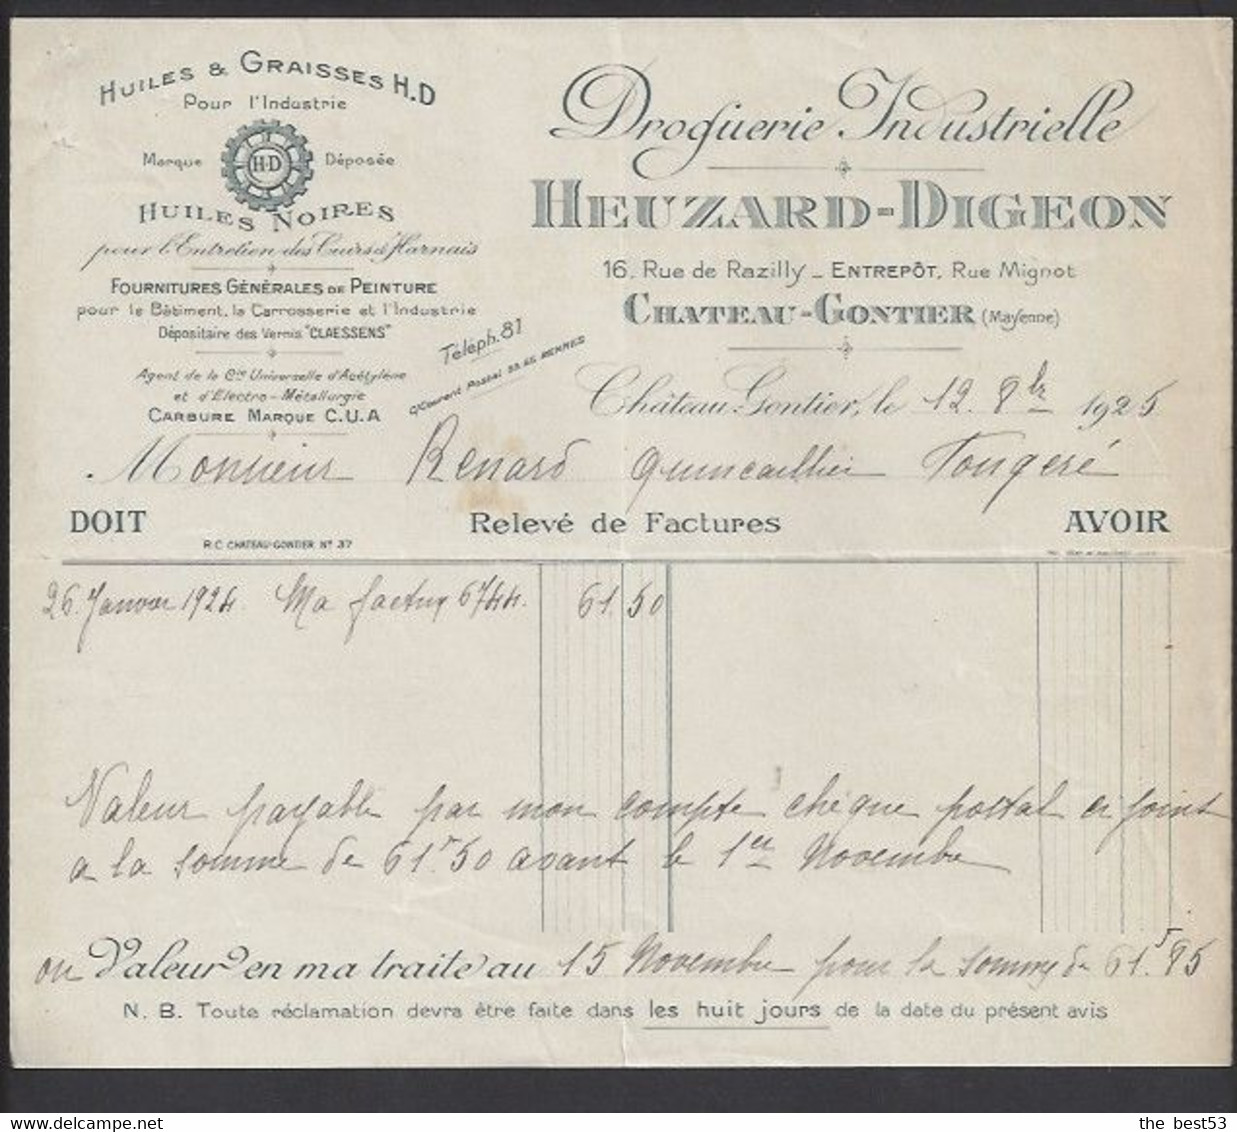 HUILES & GRAISSES H.D
Pour l'Industrie
Marque H·D Déposée
HUILES NOIRES
pour l'Entretien des Cuirs & Harnais
FOURNITURES GÉNÉRALES DE PEINTURE
pour le Bâtiment, la Carrosserie et l'Industrie
Dépositaire des Vernis "CLAESSENS"
Agent de la Cie Universelle d'Acétylène
et d'Electro-Métallurgie
CARBURE MARQUE C.U.A
Téléph. 81
C/Courant Postal RENNES
Droguerie Industrielle
HEUZARD-DIGEON
16, Rue de Razilly _ ENTREPÔT, Rue Mignot
CHATEAU-GONTIER (Mayenne)
Château-Gontier, le 12. 8bre 1925
Monsieur Renard quincaillier Fougeré
DOIT Relevé de Factures AVOIR
R.C. CHATEAU-GONTIER N° 37
26. Janvier 1924. Ma facture 6744. 61.50
Valeur payable par mon compte chèque postal ci joint
a la somme de 61f50 avant le 1er Novembre
ou Valeur en ma traite au 15 Novembre pour la somme de 61f.85
N. B. Toute réclamation devra être faite dans les huit jours de la date du présent avis
the_best53